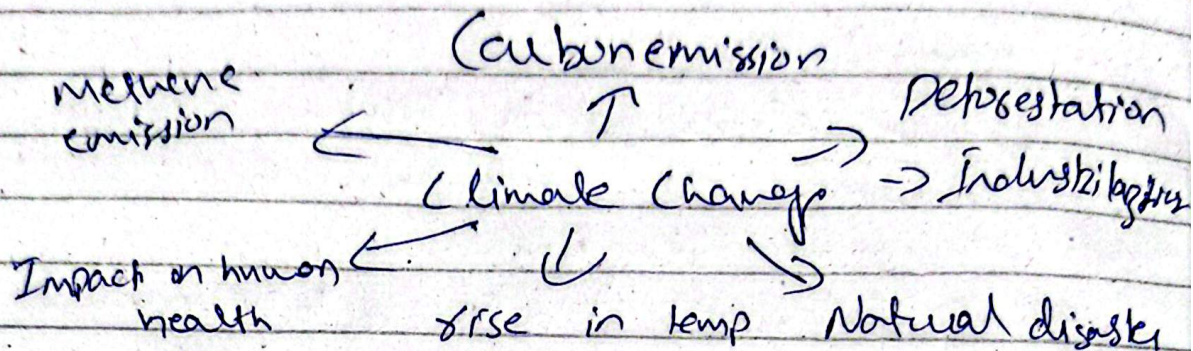 Carbon emission
Methene
emission
Deforestation
Climate Change
→ Industrilaztion
Impact on human
health
rise in temp
Natural disaster